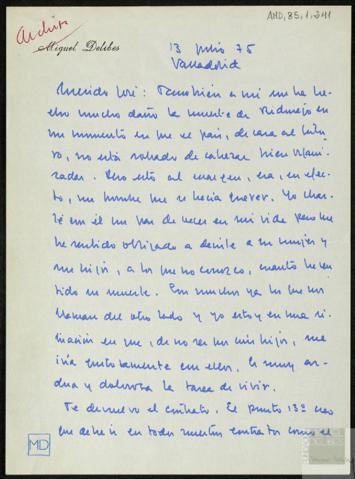 AMD,85,1,241
Archivo
Miguel Delibes
13 julio 75
Valladolid
Querido José: También a mí me ha he-
cho mucho daño la muerte de Ridruejo en
un momento en que el país, de cara al futu-
ro, no está sobrado de cabezas bien organi-
zadas. Pero esto al margen, era, en efec-
to, un hombre que se hacía querer. Yo char-
lé con él un par de veces en mi vida pero me
he sentido obligado a decirle a su mujer y
sus hijos, a los que no conozco, cuánto he sen-
tido su muerte. Son muchos ya los que nos
llaman del otro lado y yo estoy en una si-
tuación en que, de no ser por mis hijos, me
iría gustosamente con ellos. Es muy ar-
dua y dolorosa la tarea de vivir.
Te devuelvo el contrato. El punto 13º creo
que debe ir en todos nuestros contratos como el
MD